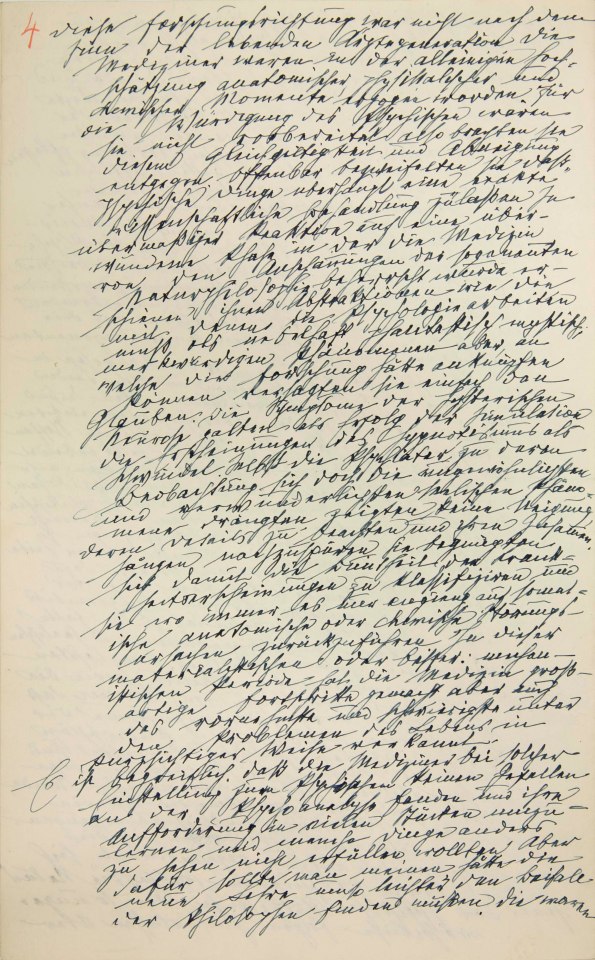 4 diese Forschungsrichtung war nicht nach dem
Sinn der lebenden Ärztegeneration die
Mediziner waren in der alleinigen Hoch-
schätzung anatomischer, physikalischer und
chemischer Momente erzogen worden. für
die Würdigung des Psychischen waren
sie nicht vorbereitet also brachten sie
diesem Gleichgiltigkeit und Abneigung
entgegen. Offenbar bezweifelten sie daß
psychische Dinge überhaupt eine exakte
wissenschaftliche Behandlung zulaßen. In
übermäßiger Reaktion auf eine über-
wundene Phase in der die Medizin
von den Anschauungen der sogenannten
Naturphilosophie beherrscht wurde er-
schienen ihnen Abstraktionen wie die
mit denen die Psychologie arbeiten
muß als nebelhaft phantastisch mystisch,
merkwürdigen Phänomenen aber, an
welche die Forschung hätte anknüpfen
können versagten sie einfach den
Glauben. die Symptome der hysterischen
Neurose galten als Erfolg der Simulation
die Erscheinungen des Hypnotismus als
Schwindel. Selbst die Psychiater zu deren
Beobachtung sich doch die ungewöhnlichsten
und verwunderlichsten seelischen Phäno-
mene drängten zeigten keine Neigung
deren Details zu beachten und ihren Zusammen-
hängen nachzuspüren. Sie begnügten
sich damit die Buntheit der Krank-
heitserscheinungen zu klassifiziren und
sie wo immer es nur anging auf somat-
ische anatomische oder chemische Störungs-
ursachen zurückzuführen. In dieser
materialistischen oder besser: mechan-
istischen Periode hat die Medizin groß-
artige Fortschritte gemacht aber auch
das vornehmste und schwierigste unter
den Problemen des Lebens in
kurzsichtiger Weise verkannt.
Es ist begreiflich, daß die Mediziner bei solcher
Einstellung zum Psychischen keinen Gefallen
an der Psychoanalyse fanden und ihre
Aufforderung in vielen Stücken umzu-
lernen und manche Dinge anders
zu sehen nicht erfüllen wollten. Aber
dafür sollte man meinen hätte die
neue Lehre umso leichter den Beifall
der Philosophen finden müßen. die waren